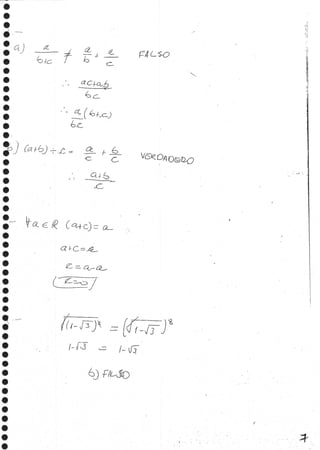 a) a/(b+c) ≠ a/b + a/c FALSO
∴ ac+ab/bc
∴ a(b+c)/bc
b) (a+b) ÷ c = a/c + b/c VERDADEIRO
∴ a+b/c
∀a ∈ R (a+c) = a
a+c=a
c=a-a
c=0
√(1-√3)⁸ = (√1-√3)⁸
1-√3 = 1-√3
b) FALSO
7